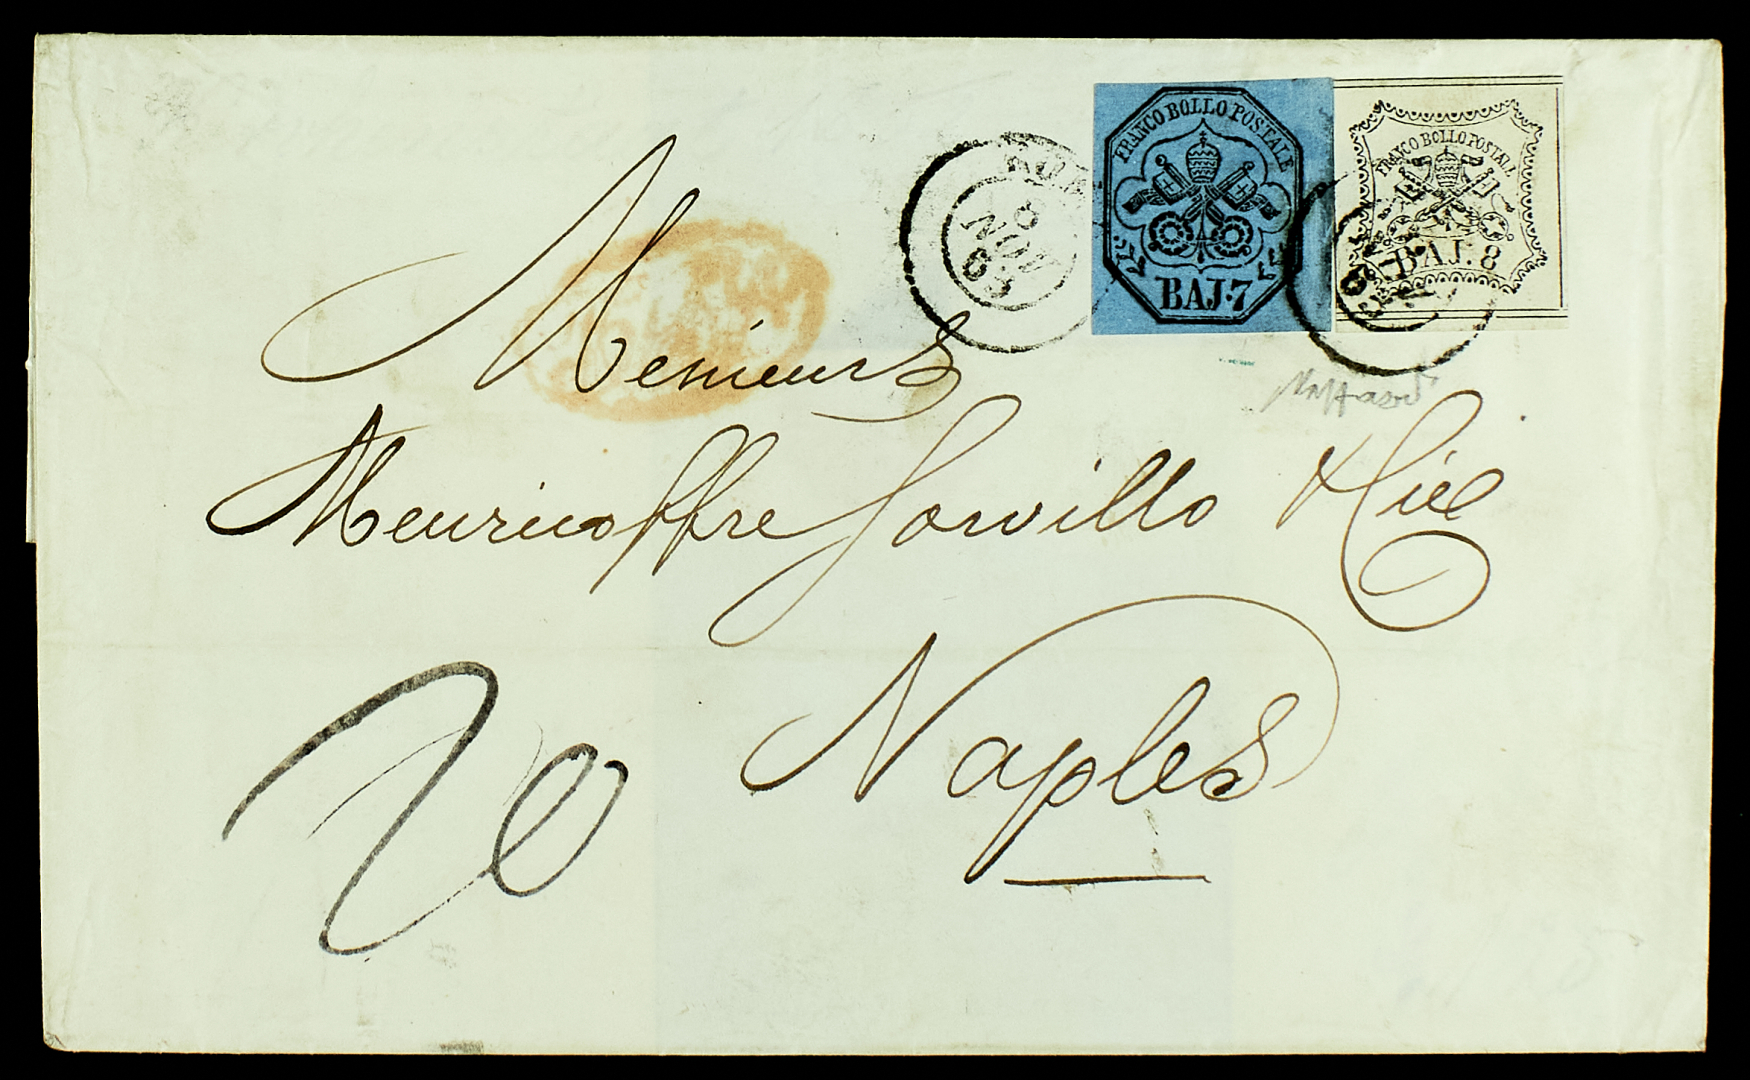 FRANCO BOLLO POSTALE
BAJ.7
FRANCO BOLLO POSTALE
BAJ: 8
ROM
6
NOV
63
Messieurs
Meuricoffre Sorvillo & Cie
Naples
20